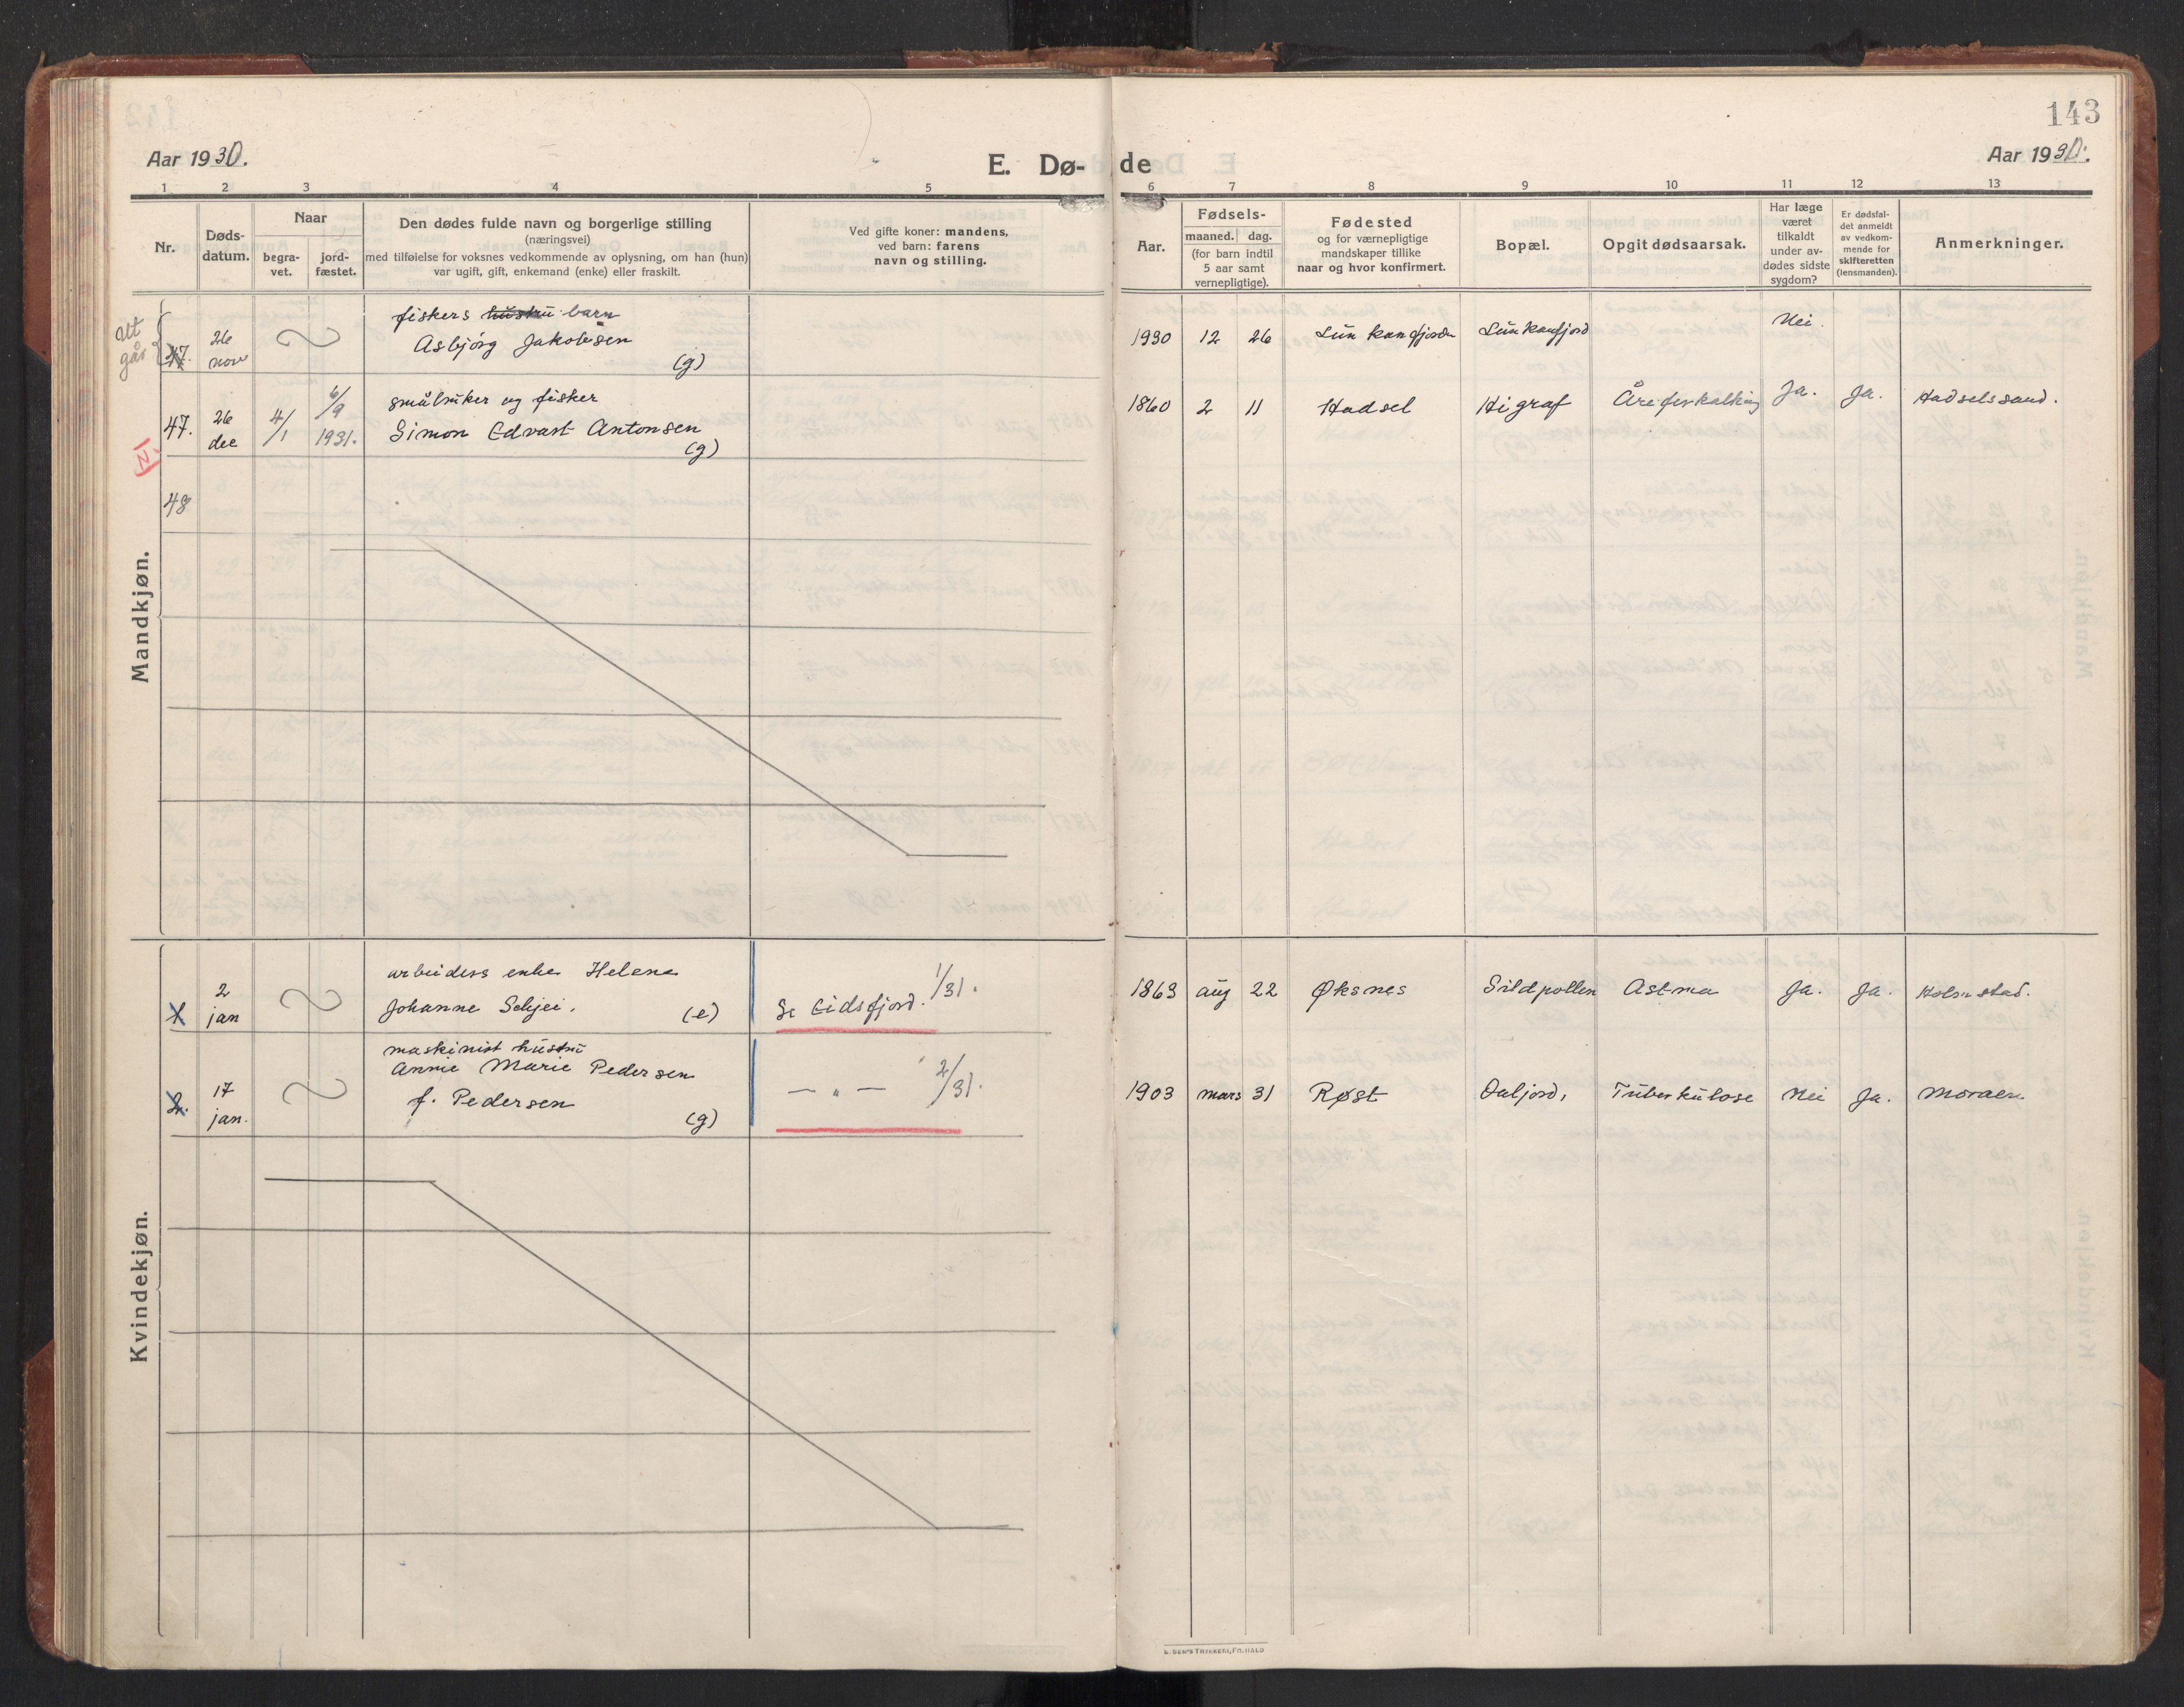 143
Aar 1930.
E. Dø-
de
Aar 1930.
1 2 3 4 5 6 7 8 9 10 11 12 13
Nr.
Døds-
datum.
Naar
begra-
vet.
jord-
fæstet.
Den dødes fulde navn og borgerlige stilling
(næringsvei)
med tilføielse for voksnes vedkommende av oplysning, om han (hun)
var ugift, gift, enkemand (enke) eller fraskilt.
Ved gifte koner: mandens,
ved barn: farens
navn og stilling.
Aar.
Fødsels-
maaned. dag.
(for barn indtil
5 aar samt
vernepligtige).
Fødested
og for værnepligtige
mandskaper tillike
naar og hvor konfirmert.
Bopæl.
Opgit dødsaarsak.
Har læge
været
tilkaldt
under av-
dødes sidste
sygdom?
Er dødsfal-
det anmeldt
av vedkom-
mende for
skifteretten
(lensmanden).
Anmerkninger.
Mandkjøn.
Ut
går
47.
26
nov
fiskers hustru barn
Asbjørg Jakobsen
(g)
1930 12 26 Lunkanfjorden Lunkanfjord Nei.
47.
26
dec
4/1
6/9
1931.
småbruker og fisker
Simon Edvart Antonsen
(g)
1860 2 11 Hadsel Higraf Åreforkalking Ja. Ja. Hadselssand.
48
Kvindekjøn.
1
2
jan
arbeiders enke Helene
Johanne Schjei. (e)
Se Eidsfjord. 1/31.
1863 aug 22 Øksnes Sildpollen Astma Ja. Ja. Holmstad.
2.
17
jan.
maskinist hustru
Annie Marie Pedersen
f. Pedersen
(g)
— " — 2/31.
1903 mars 31 Røst Daljord, Tuberkulose Nei Ja. Moraen